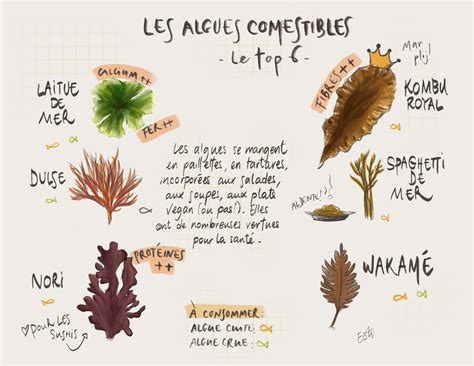 LES ALGUES COMESTIBLES
- Le top 6 -
LAITUE
DE
MER
CALCIUM ++
FER++
FIBRES ++
Mar
KOMBU
ROYAL
DULSE
Les algues se mangent
en paillettes, en tartares,
incorporées aux salades,
aux soupes, aux plats
vegan (ou pas!). Elles
ont de nombreuses vertues
pour la santé.
SPAGHETTI
DE
MER
ALDENTE!
NORI
POUR LES
SUSHIS
PROTÉINES
++
WAKAMÉ
À CONSOMMER:
ALGUE CUITE:
ALGUE CRUE: